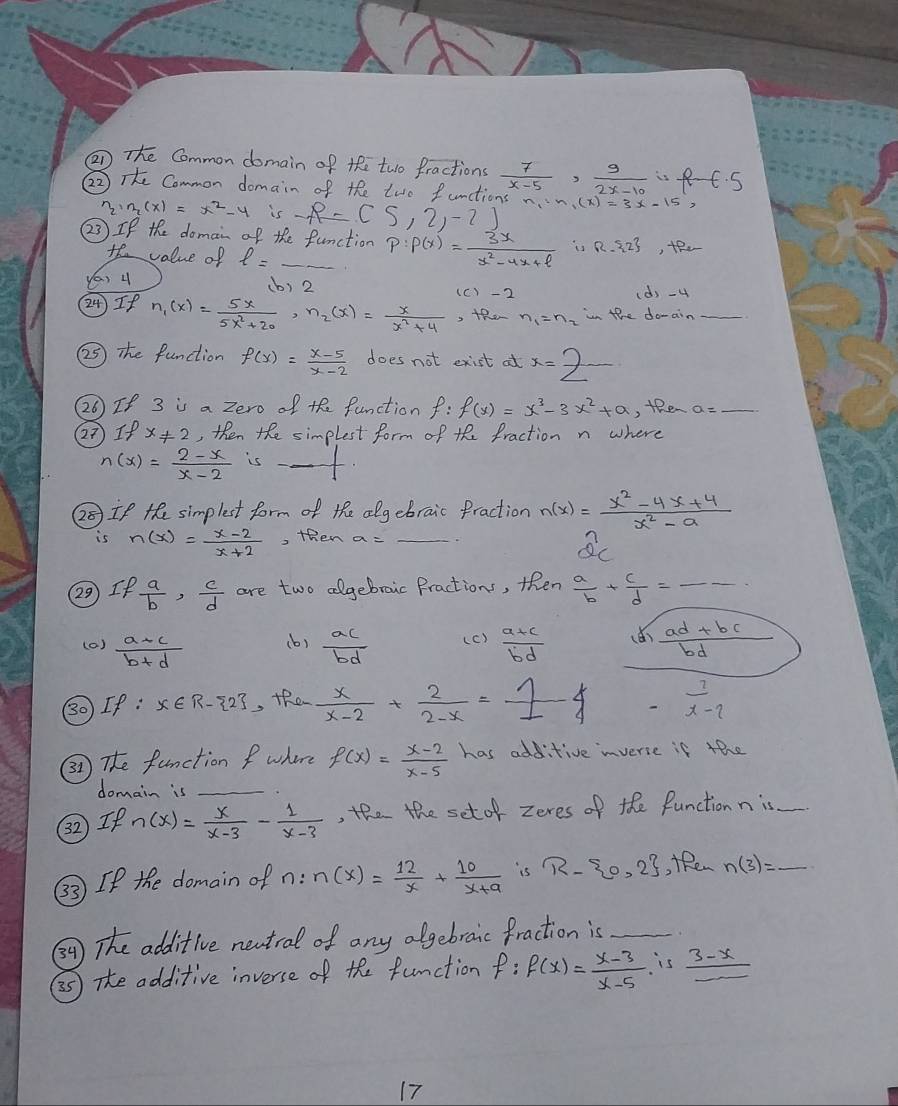 (21) The Common domain of the two fractions 7/(x-5) , 9/(2x-10) is R-{.5
(22) The Common domain of the two functions n₁:n₁(x) = 3x-15,
n₂:n₂(x) = x²-4 is R-{5,2,-2}
(23) If the domain of the function p:p(x) = 3x/(x²-4x+l) is R-{2} , then
the value of l = ____.
(a) 4 (b) 2 (c) -2 (d) -4
(24) If n₁(x) = 5x/(5x²+20) , n₂(x) = x/(x²+4) , then n₁=n₂ in the domain ____
(25) The function f(x) = (x-5)/(x-2) does not exist at x= 2
(26) If 3 is a zero of the function f:f(x) = x³-3x²+a, then a= ____
(27) If x≠2, then the simplest form of the fraction n where
n(x) = (2-x)/(x-2) is -1.
(28) If the simplest form of the algebraic fraction n(x) = (x²-4x+4)/(x²-a)
is n(x) = (x-2)/(x+2) , then a= ____.
(29) If a/b , c/d are two algebraic fractions, then a/b + c/d = ____.
(a) (a+c)/(b+d) (b) ac/bd (c) (a+c)/bd (d) (ad+bc)/bd
(30) If : x∈R-{2}, then x/(x-2) + 2/(2-x) = 1 - 2/(x-2)
(31) The function f where f(x) = (x-2)/(x-5) has additive inverse if the
domain is ____.
(32) If n(x) = x/(x-3) - 1/(x-3) , then the set of zeros of the function n is ____
(33) If the domain of n:n(x) = 12/x + 10/(x+a) is R-{0,2}, then n(3)= ____
(34) The additive neutral of any algebraic fraction is ____.
(35) The additive inverse of the function f:f(x) = (x-3)/(x-5). is 3-x
17